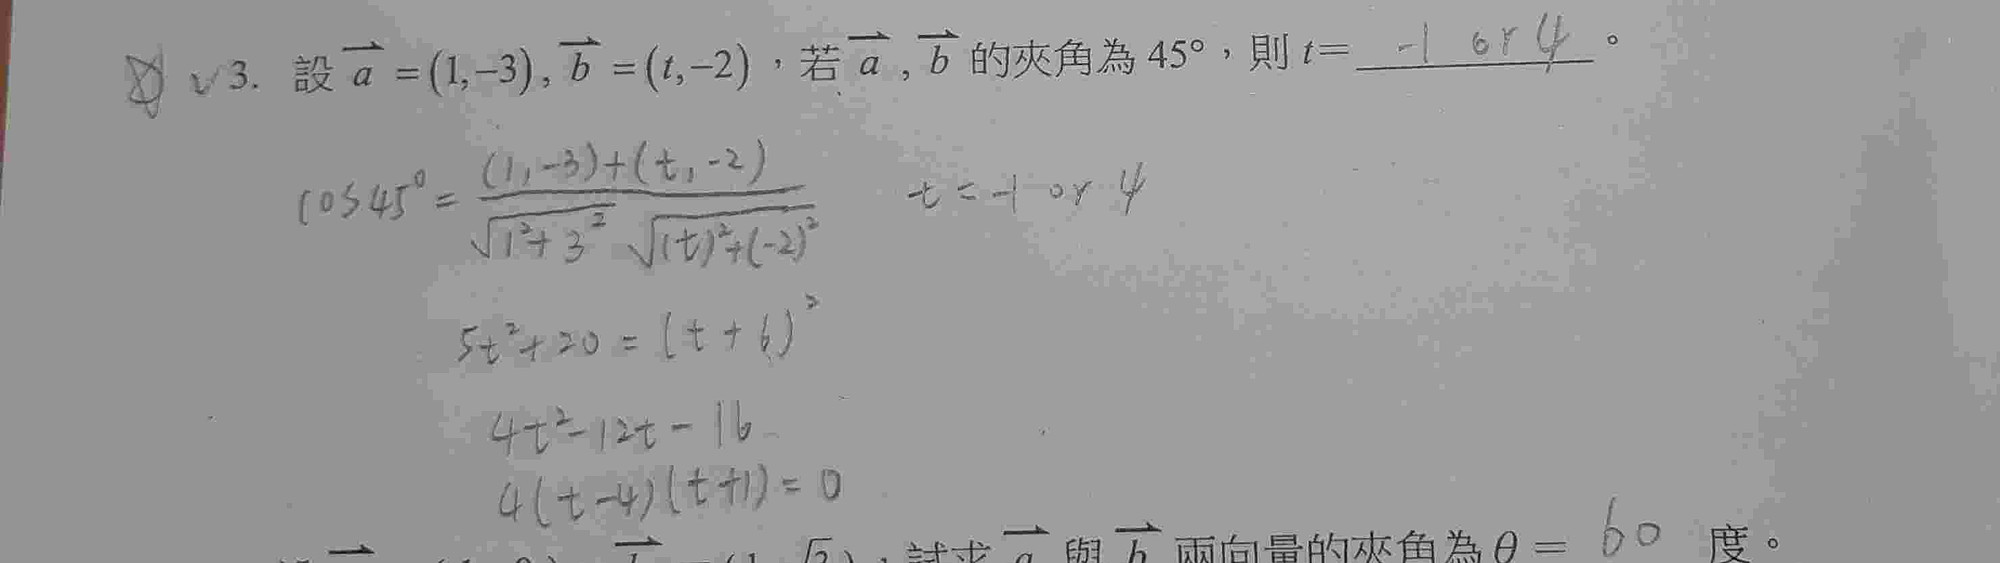 ✓3. 設 a⃗ = (1,−3), b⃗ = (t,−2)，若 a⃗ , b⃗ 的夾角為 45°，則 t= -1 or 4 。
cos45° = \frac{(1,-3)+(t,-2)}{\sqrt{1²+3²} \sqrt{(t)²+(-2)²}} t = -1 or 4
5t²+20 = (t+6)²
4t²-12t-16
4(t-4)(t+1)=0
試求 a⃗ 與 b⃗ 兩向量的夾角為 θ = 60 度。